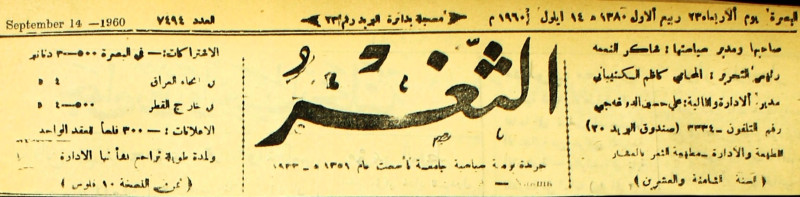 البصرة يوم الاربعاء ٢٣ ربيع الاول ١٣٨٠ هـ ١٤ ايلول ١٩٦٠ م
مسجلة بدائرة البريد رقم ٢٣
العدد ٧٤٩٤
September 14 —1960
صاحبها ومدير سياستها : شاكر النعمه
رئيس التحرير : المحامي كاظم
مدير الادارة والمالية : علي حسين
رقم التلفون - ٣٣٣٤ (صندوق البريد ٢٠)
الطبعة والادارة - مطبعة الثغر بالعشار
( السنة الثامنة والعشرين )
الثغر
جريدة يومية سياسية جامعة تأسست عام ١٣٥١ هـ - ١٩٣٣
الاشتراكات :- في البصرة ٥٠٠-٣ دنانير
في انحاء العراق ٤
في خارج القطر ٥٠٠-٤
الاعلانات :- ٣٠٠ فلساً للعقد الواحد
ولمدة طويلة تراجع بشأنها الادارة
( ثمن النسخة ١٠ فلوس )